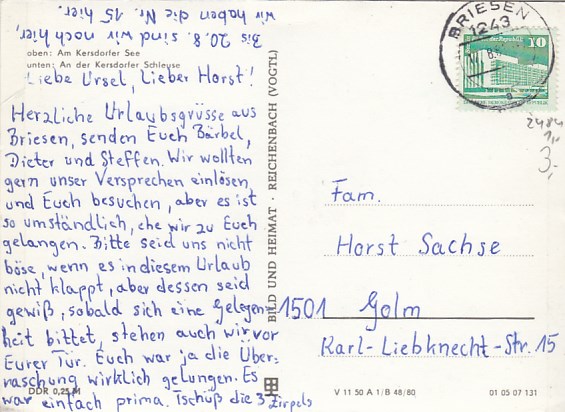 Bis 20.8. sind wir noch hier,
wir haben die Nr. 15 hier.
oben: Am Kersdorfer See
unten: An der Kersdorfer Schleuse
Liebe Ursel, Lieber Horst!
Herzliche Urlaubsgrüsse aus
Briesen, senden Euch Bärbel,
Dieter und Steffen. Wir wollten
gern unser Versprechen einlösen,
und Euch besuchen, aber es ist
so umständlich, ehe wir zu Euch
gelangen. Bitte seid uns nicht
böse, wenn es in diesem Urlaub
nicht klappt, aber dessen seid
gewiß, sobald sich eine Gelegen-
heit bittet, stehen auch wir vor
Eurer Tür. Euch war ja die Über-
raschung wirklich gelungen. Es
war einfach prima. Tschüß die 3 Zirpels
DDR 0,25 M
BILD UND HEIMAT · REICHENBACH (VOGTL)
BRIESEN
1243
10
2484
3,-
Fam.
Horst Sachse
1501 Golm
Karl-Liebknecht-Str. 15
V 11 50 A 1/B 48/80
01 05 07 131